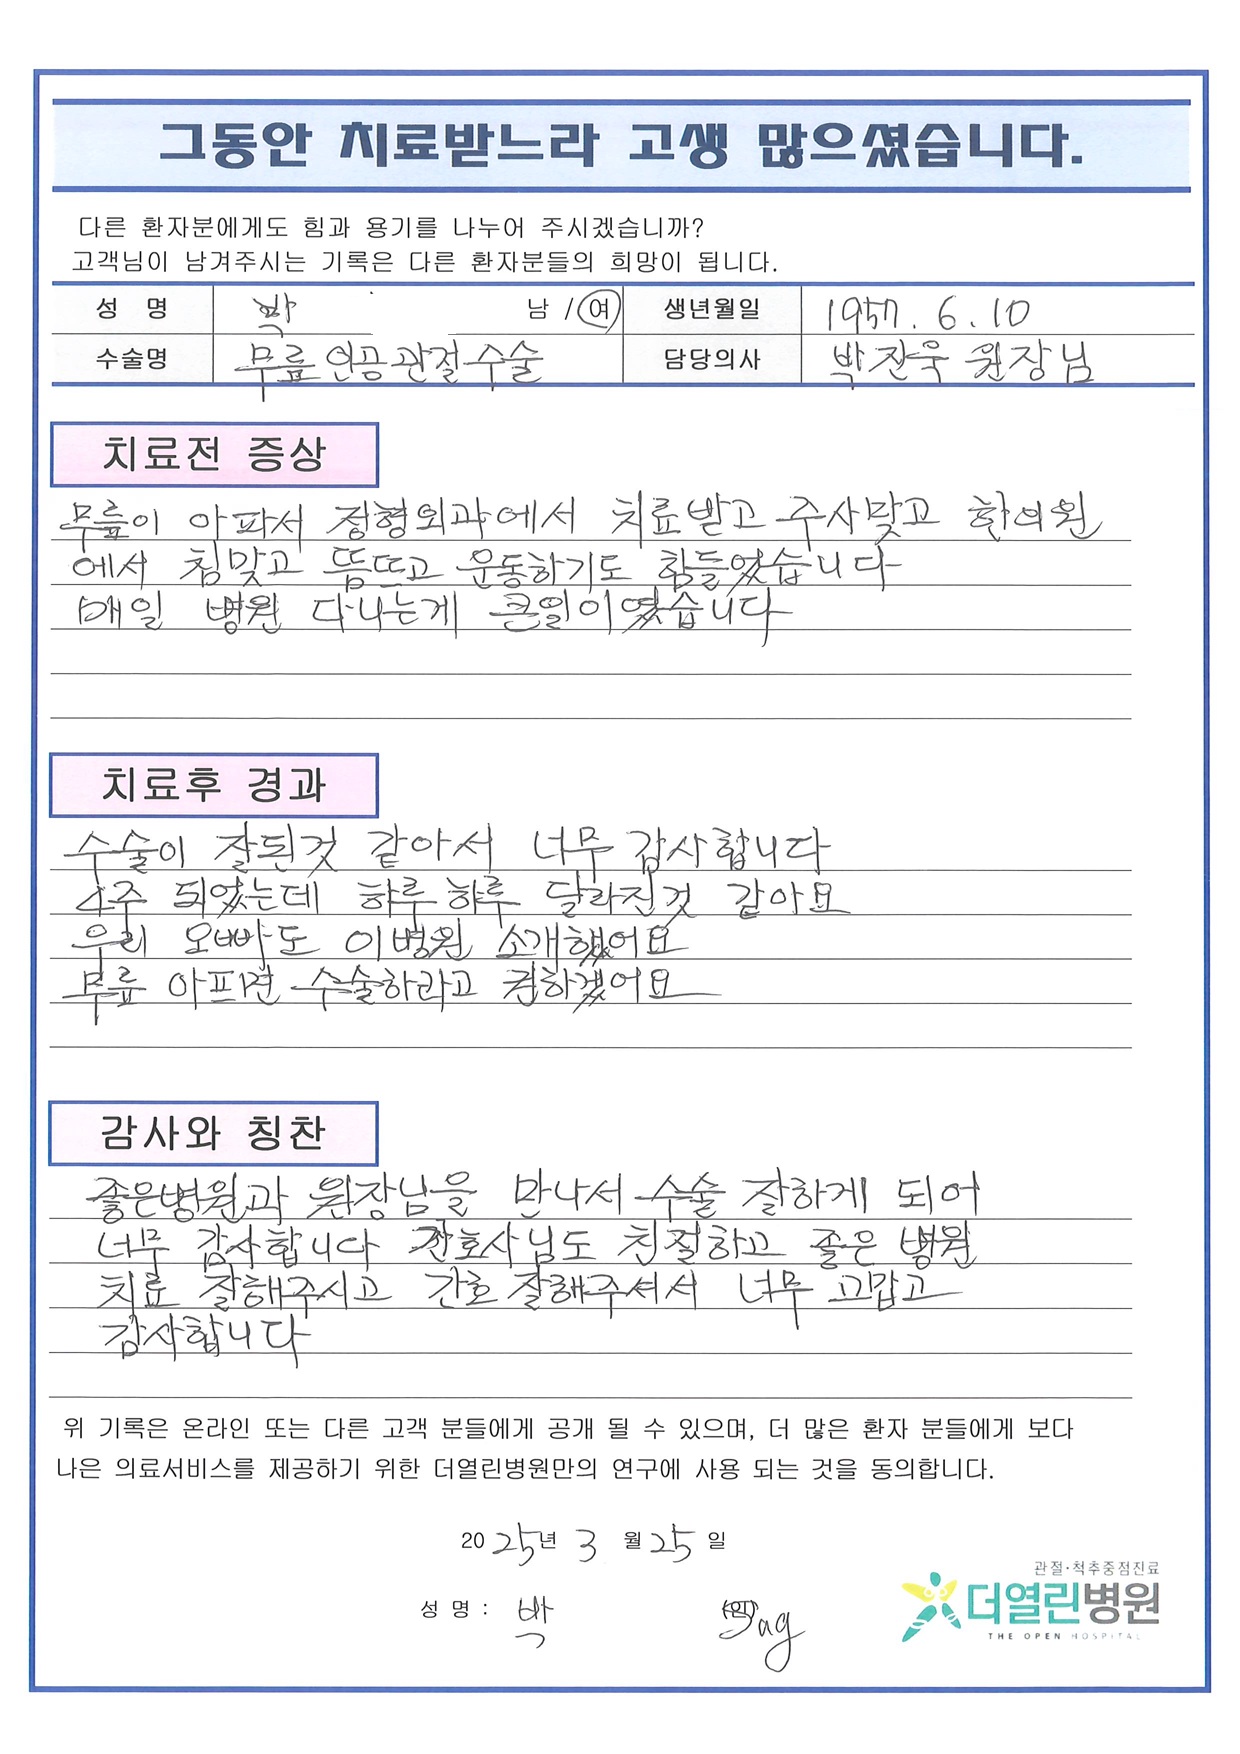 그동안 치료받느라 고생 많으셨습니다.
다른 환자분에게도 힘과 용기를 나누어 주시겠습니까?
고객님이 남겨주시는 기록은 다른 환자분들의 희망이 됩니다.
성 명 박 남 / 여 생년월일 1957. 6. 10
수술명 무릎인공관절수술 담당의사 박진욱 원장님
치료전 증상
무릎이 아파서 정형외과에서 치료받고 주사맞고 한의원
에서 침맞고 뜸뜨고 운동하기도 힘들었습니다
매일 병원 다니는게 큰일이였습니다
치료후 경과
수술이 잘된것 같아서 너무 감사합니다
4주 되었는데 하루하루 달라진것 같아요
우리 오빠도 이병원 소개했어요
무릎 아프면 수술하라고 권하겠어요
감사와 칭찬
좋은병원과 원장님을 만나서 수술 잘하게 되어
너무 감사합니다 간호사님도 친절하고 좋은 병원
치료 잘해주시고 간호 잘해주셔서 너무 고맙고
감사합니다
위 기록은 온라인 또는 다른 고객 분들에게 공개 될 수 있으며, 더 많은 환자 분들에게 보다
나은 의료서비스를 제공하기 위한 더열린병원만의 연구에 사용 되는 것을 동의합니다.
2025년 3 월 25 일
성 명 : 박 (인)
관절·척추중점진료
더열린병원
THE OPEN HOSPITAL